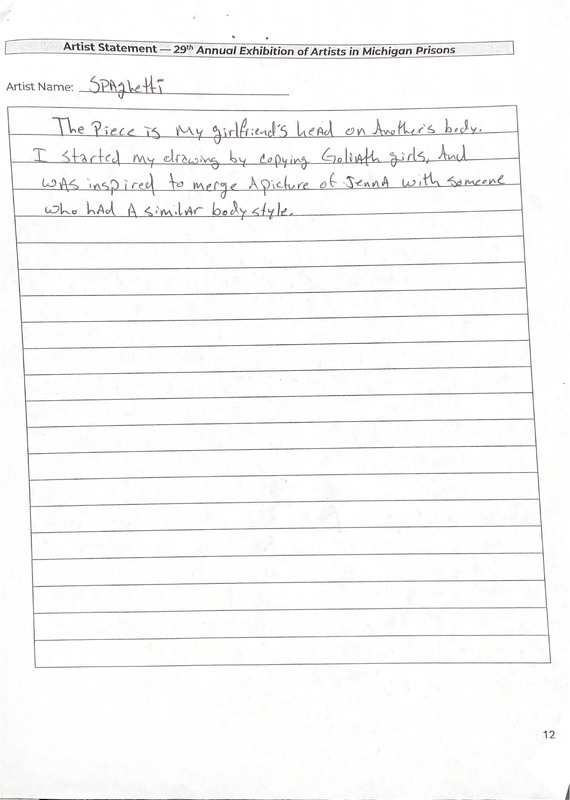 Artist Statement — 29th Annual Exhibition of Artists in Michigan Prisons
Artist Name: SPAghetti
The Piece is My girlfriend's head on Another's body.
I started my drawing by copying GoliAth girls, And
wAs inspired to merge A picture of JennA with someone
who hAd A similAr body style.
12